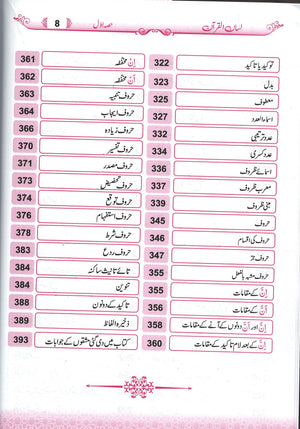 لسان القرآن
حصہ اول
8
توکید یا تاکید 322
بدل 323
معطوف 325
اسماء العدد 327
عدد ترتیبی 332
عدد کسری 334
اسمائے ظروف 336
معرب ظروف 337
مبنی ظروف 339
حروف 345
حروف کی اقسام 346
حروف جر 347
حروف مشبہ بالفعل 355
اِنَّ کے مقامات 355
اَنَّ کے مقامات 356
اِنَّ اور اَنَّ دونوں کے آنے کے مقامات 358
اِنَّ کے بعد لام تاکید کے مقامات 360
اِنْ مخففہ 361
اَنْ مخففہ 362
حروف تنبیہ 363
حروف ایجاب 364
حروف زیادہ 366
حروف تفسیر 370
حروف مصدر 371
حروف تحضیض 373
حروف توقع 374
حروف استفہام 376
حروف شرط 378
حروف ردع 383
تائے تانیث ساکنہ 384
تنوین 384
تاکید کے دو نون 387
ذخیرہ الفاظ 389
کتاب میں دی گئی مشقوں کے جوابات 393